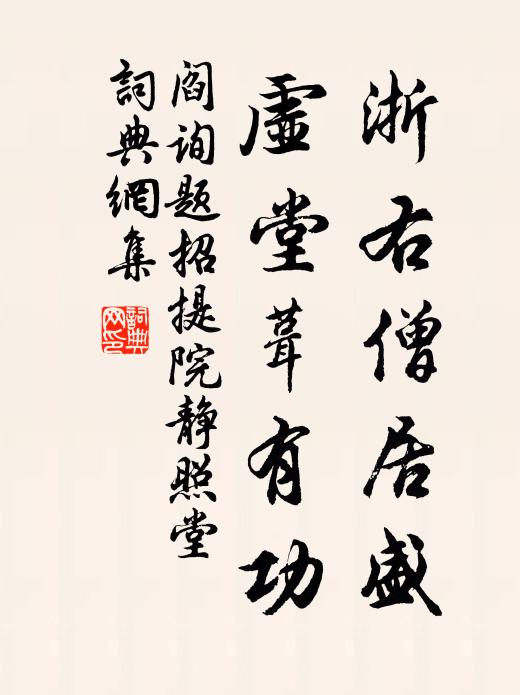 浙右僧居盛
虚堂葺有功
阎询题招提院静照堂
詞典網集
詞典
网印